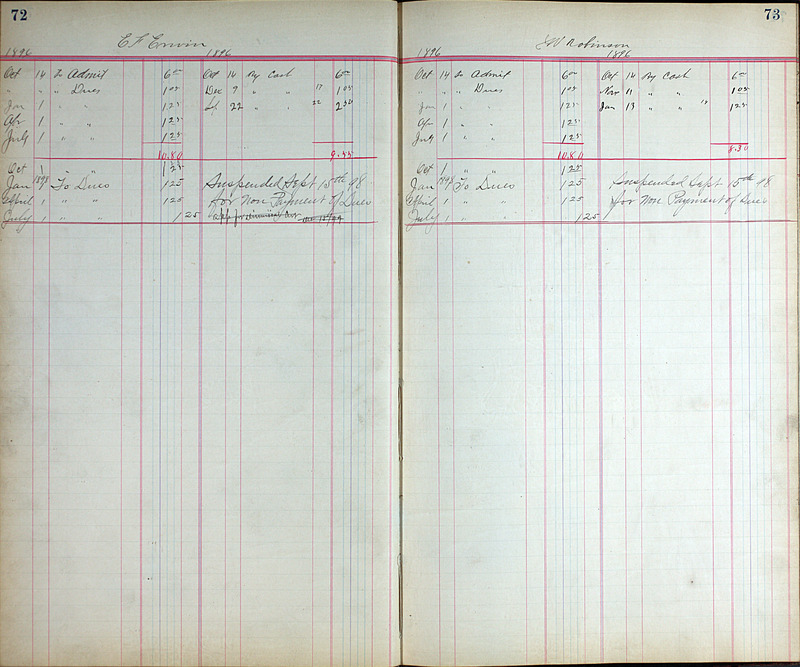 72
E F Erwin
1896 1896
Oct 14 To Admit 6 00 Oct 14 By Cash 6 00
" " " Dues 1 05 Dec 9 " " 17 1 05
Jan 1 " " 1 25 22 " " 22 2 50
Apr 1 " " 1 25
July 1 " " 1 25
10.80 9.55
Oct 1 " " 1 25
Jan 1898 To Dues 1 25 Suspended Sept 15th 98
April 1 " " 1 25 for Non Payment of Dues
July 1 " " 1 25
73
J W Robinson
1896 1896
Oct 14 To Admit 6 00 Oct 14 By Cash 6 00
" " " Dues 1 05 Nov 11 " " 1 05
Jan 1 " " 1 25 Jan 13 " " 1 25
Apr 1 " " 1 25
July 1 " " 1 25
10.80 8.30
Oct 1 " " 1 25
Jan 1898 To Dues 1 25 Suspended Sept 15th 98
April 1 " " 1 25 for Non Payment of Dues
July 1 " " 1 25